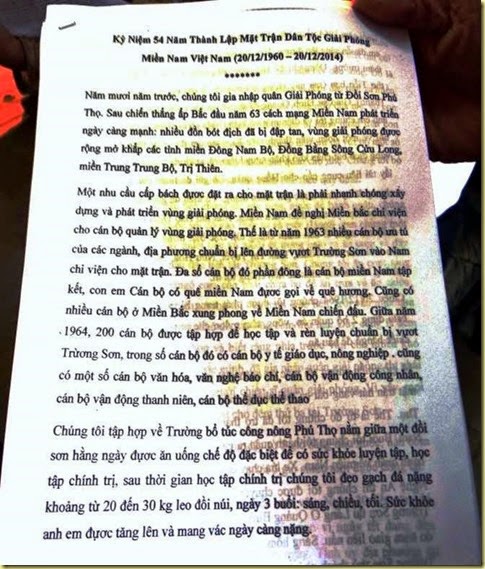 Kỷ Niệm 54 Năm Thành Lập Mặt Trận Dân Tộc Giải Phóng
Miền Nam Việt Nam (20/12/1960 – 20/12/2014)
*******
Năm mươi năm trước, chúng tôi gia nhập quân Giải Phóng từ Đồi Sơn Phú
Thọ. Sau chiến thắng ấp Bắc đầu năm 63 cách mạng Miền Nam phát triển
ngày càng mạnh: nhiều đồn bót địch đã bị đập tan, vùng giải phóng được
rộng mở khắp các tỉnh miền Đông Nam Bộ, Đồng Bằng Sông Cửu Long,
miền Trung Trung Bộ, Trị Thiên.
Một nhu cầu cấp bách được đặt ra cho mặt trận là phải nhanh chóng xây
dựng và phát triển vùng giải phóng. Miền Nam đề nghị Miền bắc chi viện
cho cán bộ quản lý vùng giải phóng. Thế là từ năm 1963 nhiều cán bộ ưu tú
của các ngành, địa phương chuẩn bị lên đường vượt Trường Sơn vào Nam
chi viện cho mặt trận. Đa số cán bộ đó phần đông là cán bộ miền Nam tập
kết, con em Cán bộ có quê miền Nam được gọi về quê hương. Cũng có
nhiều cán bộ ở Miền Bắc xung phong về Miền Nam chiến đấu. Giữa năm
1964, 200 cán bộ được tập hợp để học tập và rèn luyện chuẩn bị vượt
Trường Sơn, trong số cán bộ đó có cán bộ y tế giáo dục, nông nghiệp . cũng
có một số cán bộ văn hóa, văn nghệ báo chí, cán bộ vận động công nhân,
cán bộ vận động thanh niên, cán bộ thể dục thể thao
Chúng tôi tập hợp về Trường bổ túc công nông Phú Thọ nằm giữa một đồi
sơn hằng ngày được ăn uống chế độ đặc biệt để có sức khỏe luyện tập, học
tập chính trị, sau thời gian học tập chính trị chúng tôi đeo gạch đá nặng
khoảng từ 20 đến 30 kg leo đồi núi, ngày 3 buổi: sáng, chiều, tối. Sức khỏe
anh em được tăng lên và mang vác ngày càng nặng.